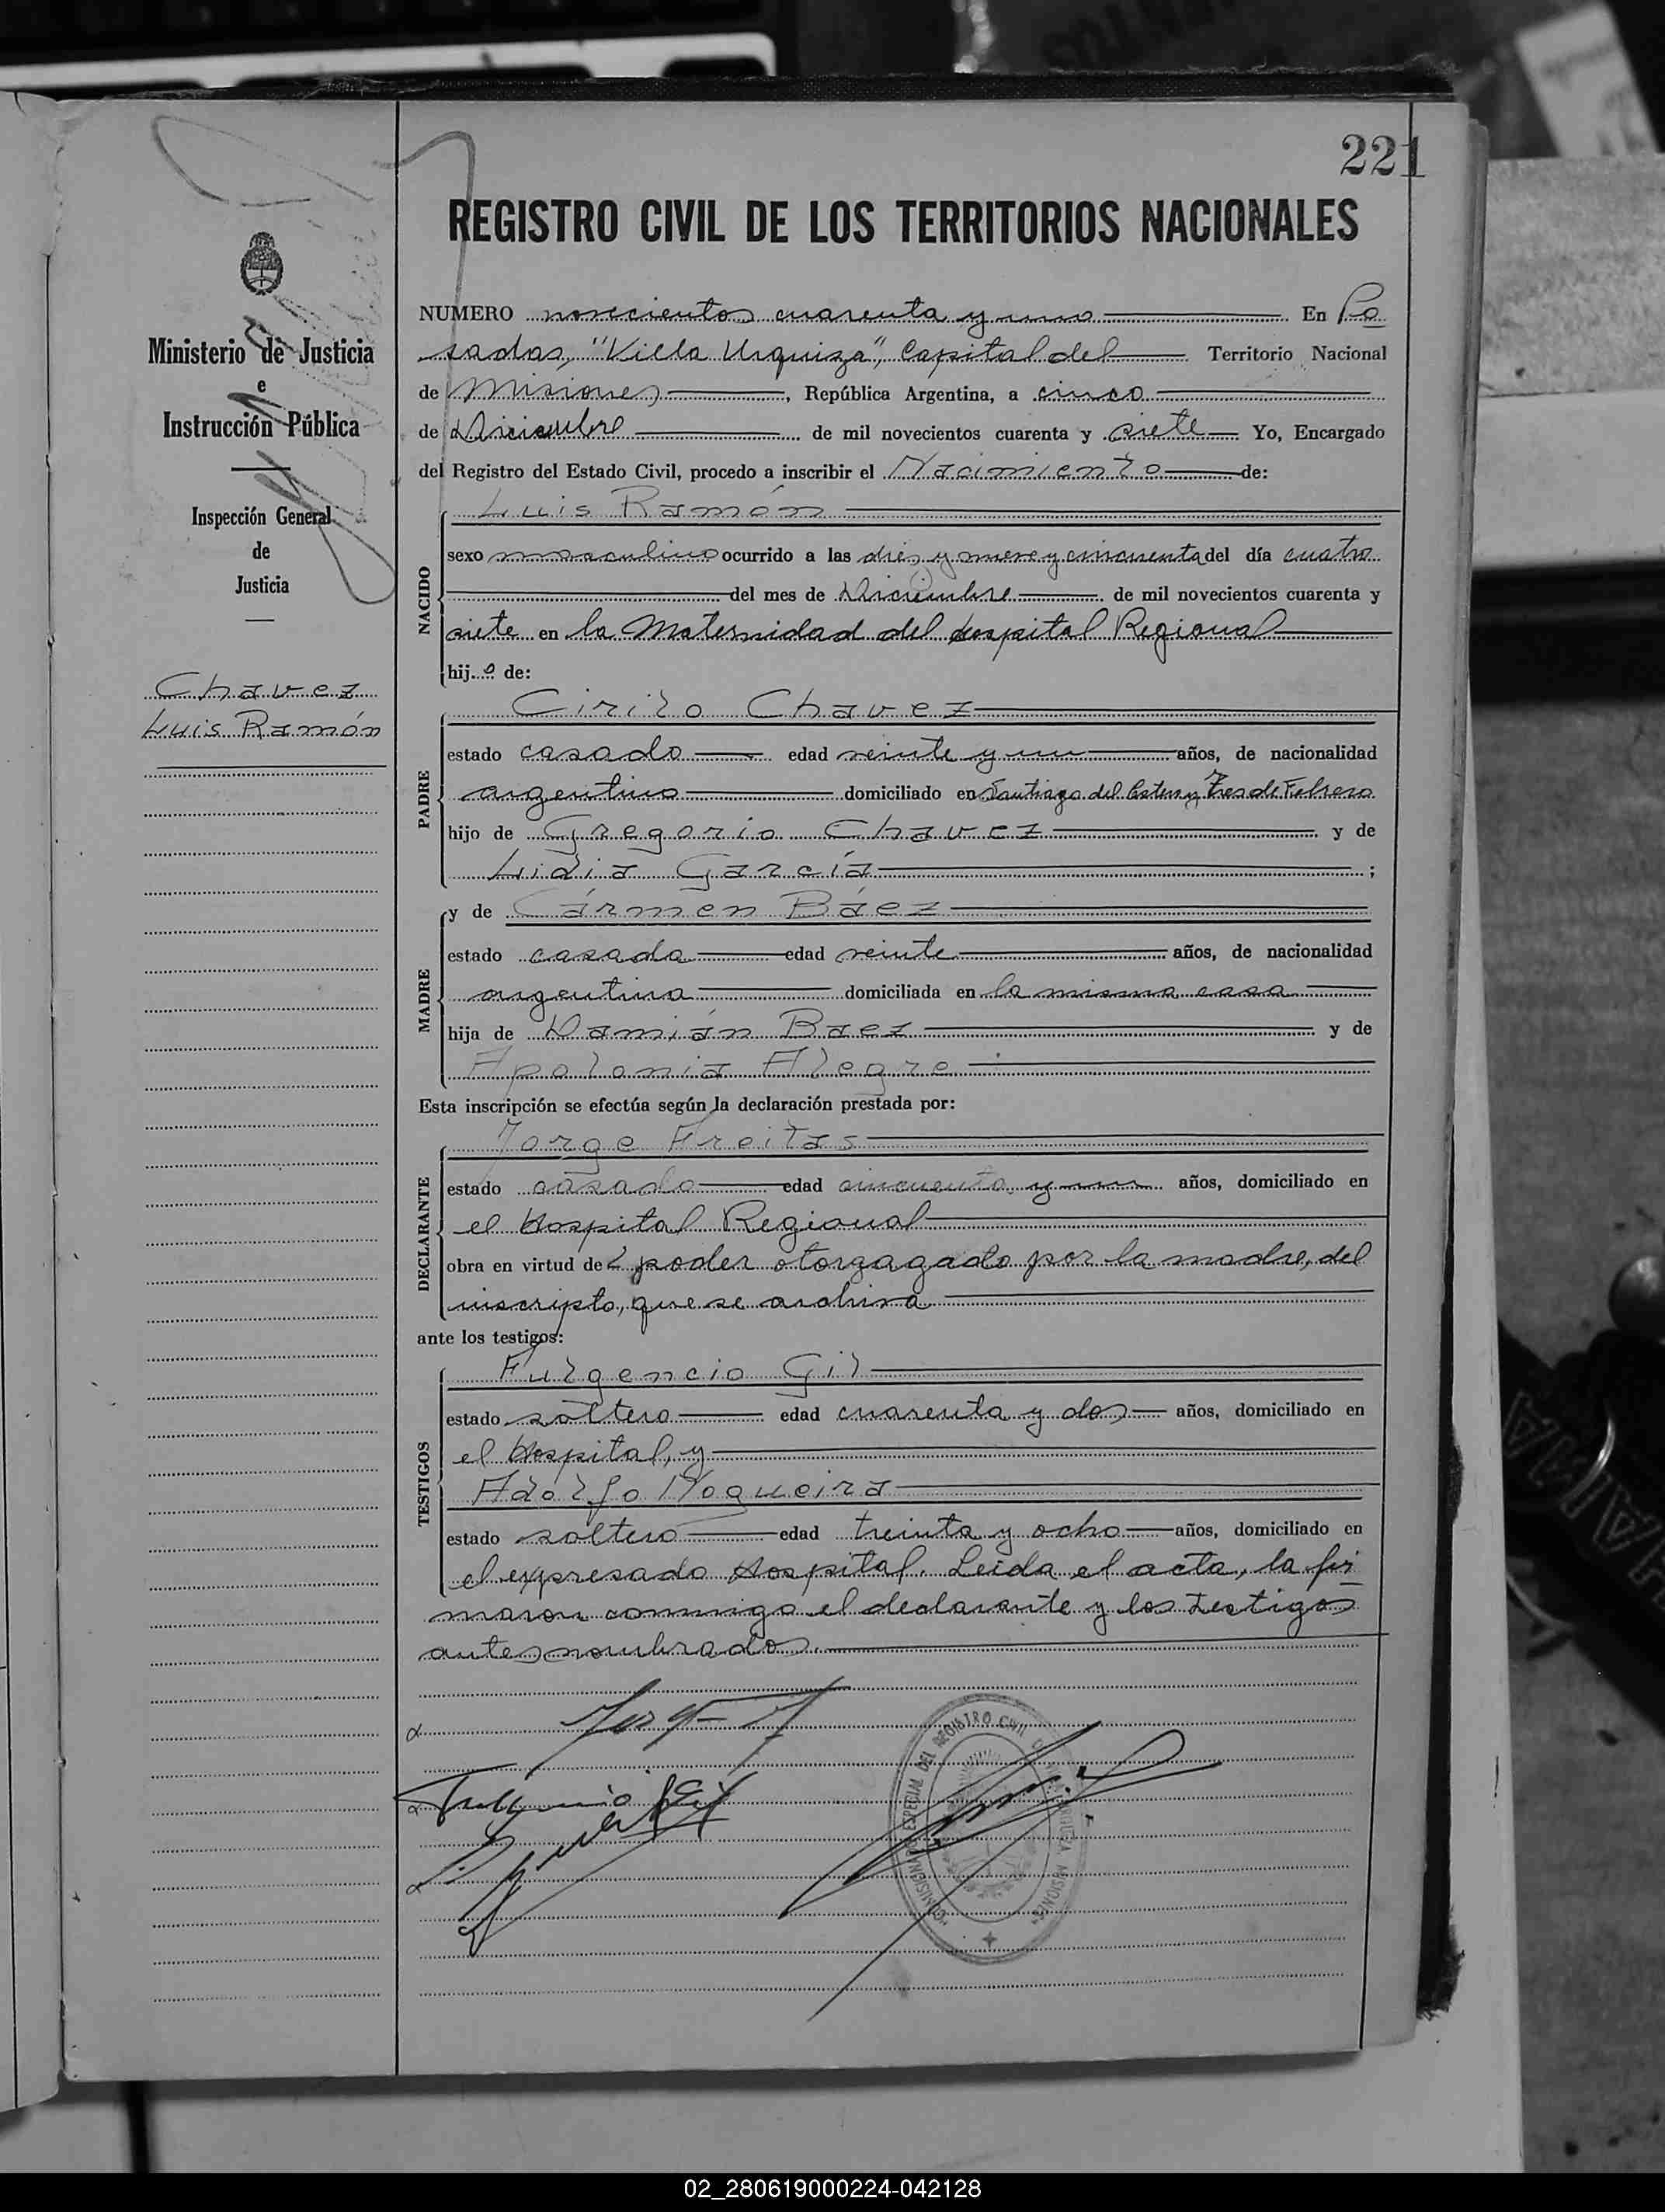 221
REGISTRO CIVIL DE LOS TERRITORIOS NACIONALES
Ministerio de Justicia
e
Instrucción Pública
Inspección General
de
Justicia
Chavez
Luis Ramón
NUMERO novecientos cuarenta y uno En Po
sadas, "Villa Urquiza", Capital del Territorio Nacional
de Misiones, República Argentina, a cinco
de Diciembre de mil novecientos cuarenta y siete Yo, Encargado
del Registro del Estado Civil, procedo a inscribir el Nacimiento de:
NACIDO
Luis Ramón
sexo masculino ocurrido a las diez y nueve y cincuenta del día cuatro
del mes de Diciembre de mil novecientos cuarenta y
siete en la Maternidad del Hospital Regional
hijo de:
PADRE
Cirilo Chavez
estado casado edad veinte y un años, de nacionalidad
argentino domiciliado en Santiago del Estero y Tres de Febrero
hijo de Gregorio Chavez y de
Lidia García;
MADRE
y de Cármen Báez
estado casada edad veinte años, de nacionalidad
argentina domiciliada en la misma casa
hija de Damián Baez y de
Apolonia Alegre
Esta inscripción se efectúa según la declaración prestada por:
DECLARANTE
Jorge Freitas
estado casado edad cincuenta y un años, domiciliado en
el Hospital Regional
obra en virtud de poder otorgagado por la madre, del
inscripto, que se archiva
ante los testigos:
TESTIGOS
Fulgencio Gil
estado soltero edad cuarenta y dos años, domiciliado en
el Hospital, y
Adolfo Nogueira
estado soltero edad treinta y ocho años, domiciliado en
el expresado Hospital. Leida el acta, la fir
maron conmigo el declarante y los testigos
antes nombrados.
Fulgencio Gil
COMISIONADO ESPECIAL DEL REGISTRO CIVIL
MISIONES
02_280619000224-042128